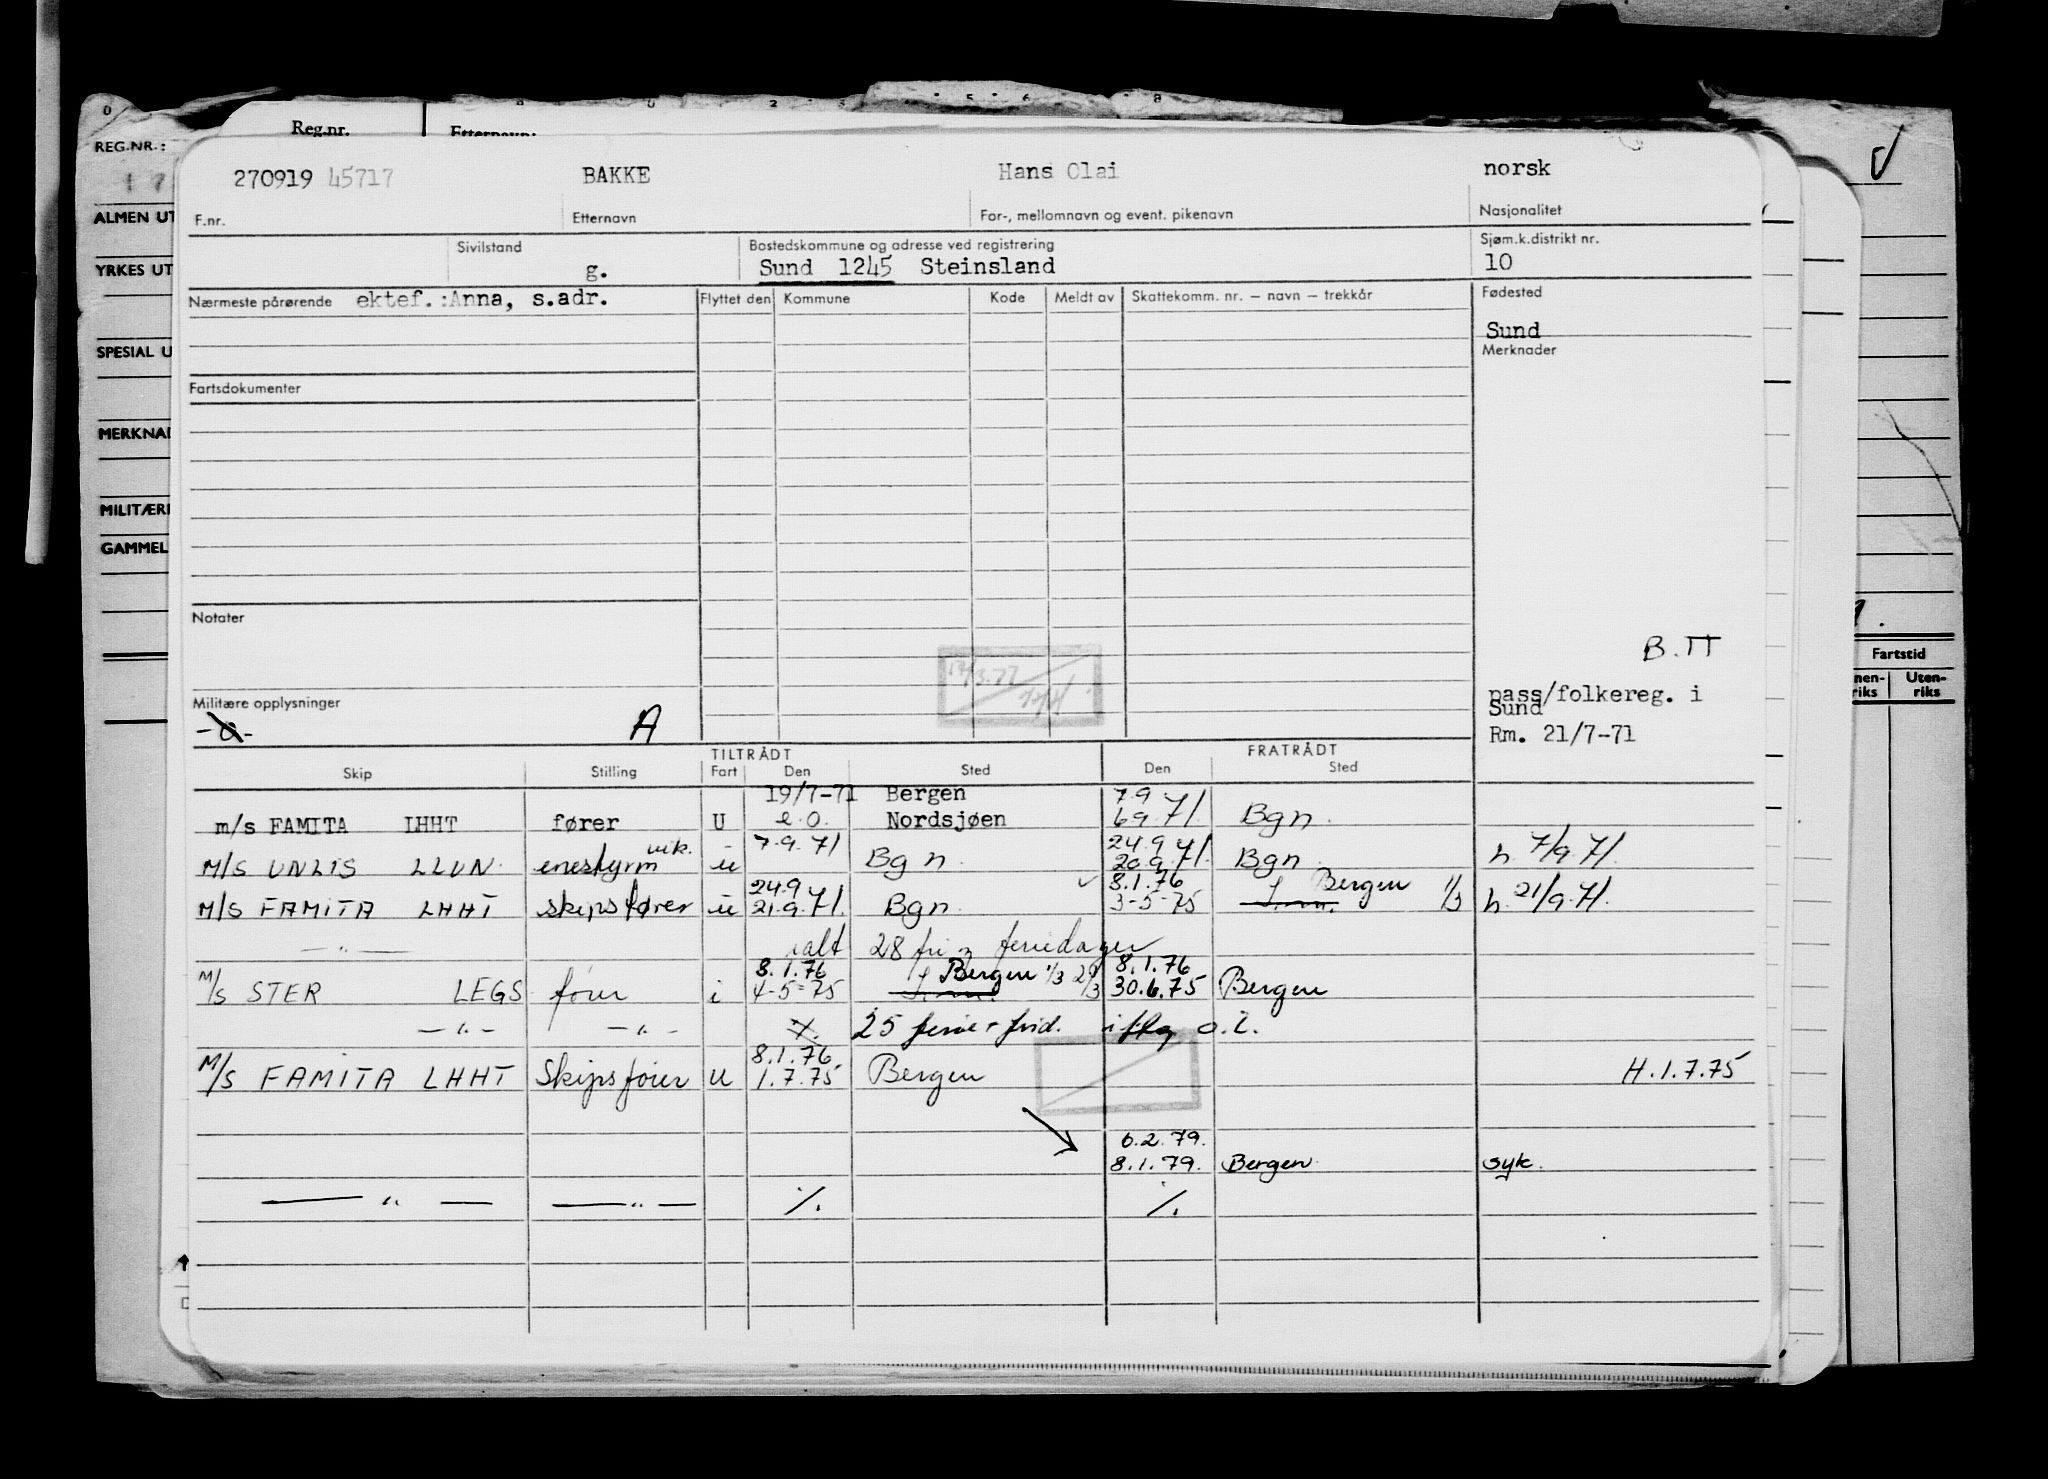 Reg.nr. Etternavn:
REG.NR.:
270919 45717 BAKKE Hans Olai norsk
F.nr. Etternavn For-, mellomnavn og event. pikenavn Nasjonalitet
ALMEN UT
Sivilstand Bostedskommune og adresse ved registrering Sjøm.k.distrikt nr.
YRKES UT
g. Sund 1245 Steinsland 10
Nærmeste pårørende ektef.:Anna, s.adr. Flyttet den Kommune Kode Meldt av Skattekomm. nr. – navn – trekkår Fødested
Sund
SPESIAL U
Merknader
Fartsdokumenter
MERKNAD
MILITÆRE
GAMMEL
Notater
B.TT
Fartstid
nen-riks Uten-riks
pass/folkereg. i
Sund
Militære opplysninger
-a- A
Rm. 21/7-71
TILTRÅDT FRATRÅDT
Skip Stilling Fart Den Sted Den Sted
19/7-71 Bergen 7.9
m/s FAMITA LHHT fører U e.o. Nordsjøen 6.9.71. Bgn.
vik. 7.9.71 24.9
M/S UNLIS LLUN. enestyrm u Bgn. 20.9.71. Bgn. h. 7/9.71.
24.9 8.1.76 Bergen
M/S FAMITA LHHT skipsfører u 21.9.71. Bgn. 3-5-75 1/3 h. 21/9.71.
— " — ialt 28 fri feriedager
8.1.76 Bergen 1/3 8.1.76
M/S STER LEGS fører i 4-5-75 30.6.75 Bergen
— " — — " — 25 ferie + frid.
8.1.76
M/S FAMITA LHHT Skipsfører u 1.7.75 Bergen H.1.7.75
6.2.79.
8.1.79. Bergen syk.
— " — — " — ./. ./.